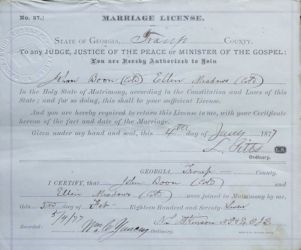 No. 37.
MARRIAGE LICENSE.
STATE OF GEORGIA, Troup COUNTY.
To any JUDGE, JUSTICE OF THE PEACE or MINISTER OF THE GOSPEL:
You are Hereby Authorized to Join
John Boon (Col) Ellen Meadows (Col)
In the Holy State of Matrimony, according to the Constitution and Laws of this
State; and for so doing, this shall be your sufficient License.
And you are hereby required to return this License to me, with your Certificate
hereon of the fact and date of the Marriage.
Given under my hand and seal, this 4th day of Jany 1877
Ordinary.
GEORGIA, Troup County
I CERTIFY, that John Boon (Col) and
Ellen Meadows (Col) were joined in Matrimony by me,
this day of Feb Eighteen Hundred and Seventy-Seven
Recorded: 5/9/77
Ordinary.